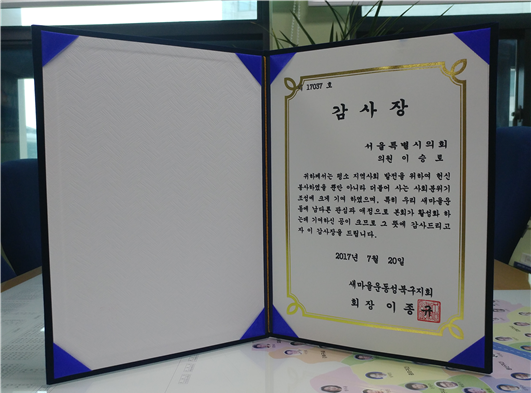 제 17037 호
감 사 장
서울특별시의회
의원 이 승 로
귀하께서는 평소 지역사회 발전을 위하여 헌신
봉사하였을 뿐만 아니라 더불어 사는 사회분위기
조성에 크게 기여 하였으며, 특히 우리 새마을운
동에 남다른 관심과 애정으로 본회가 활성화 하
는데 기여하신 공이 크므로 그 뜻에 감사드리고
자 이 감사장을 드립니다.
2017년 7월 20일
새마을운동성북구지회
회 장 이 종 규